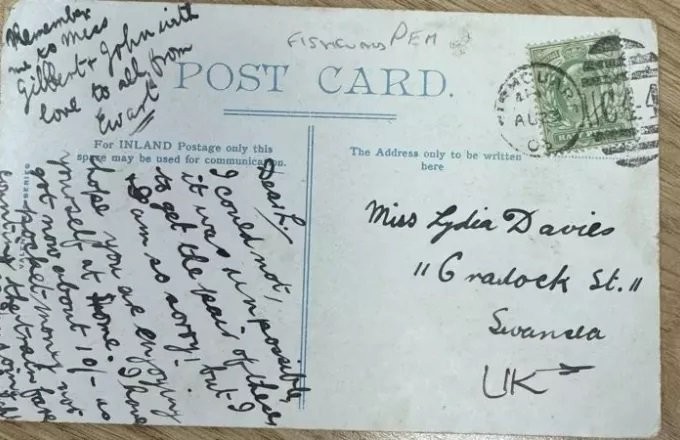 Remember
me to Miss
Gilbert & John with
love to all from
Ewart
PEM
POST CARD.
For INLAND Postage only this
space may be used for communication.
The Address only to be written
here
Dear L.
I could not,
it was impossible
to get the pair of these
I am so sorry, but I
hope you are enjoying
yourself at home. I have
got now about 10/- as
pocket money not
counting the train fare
Miss Lydia Davies
11 Cradock St.
Swansea
UK
AU